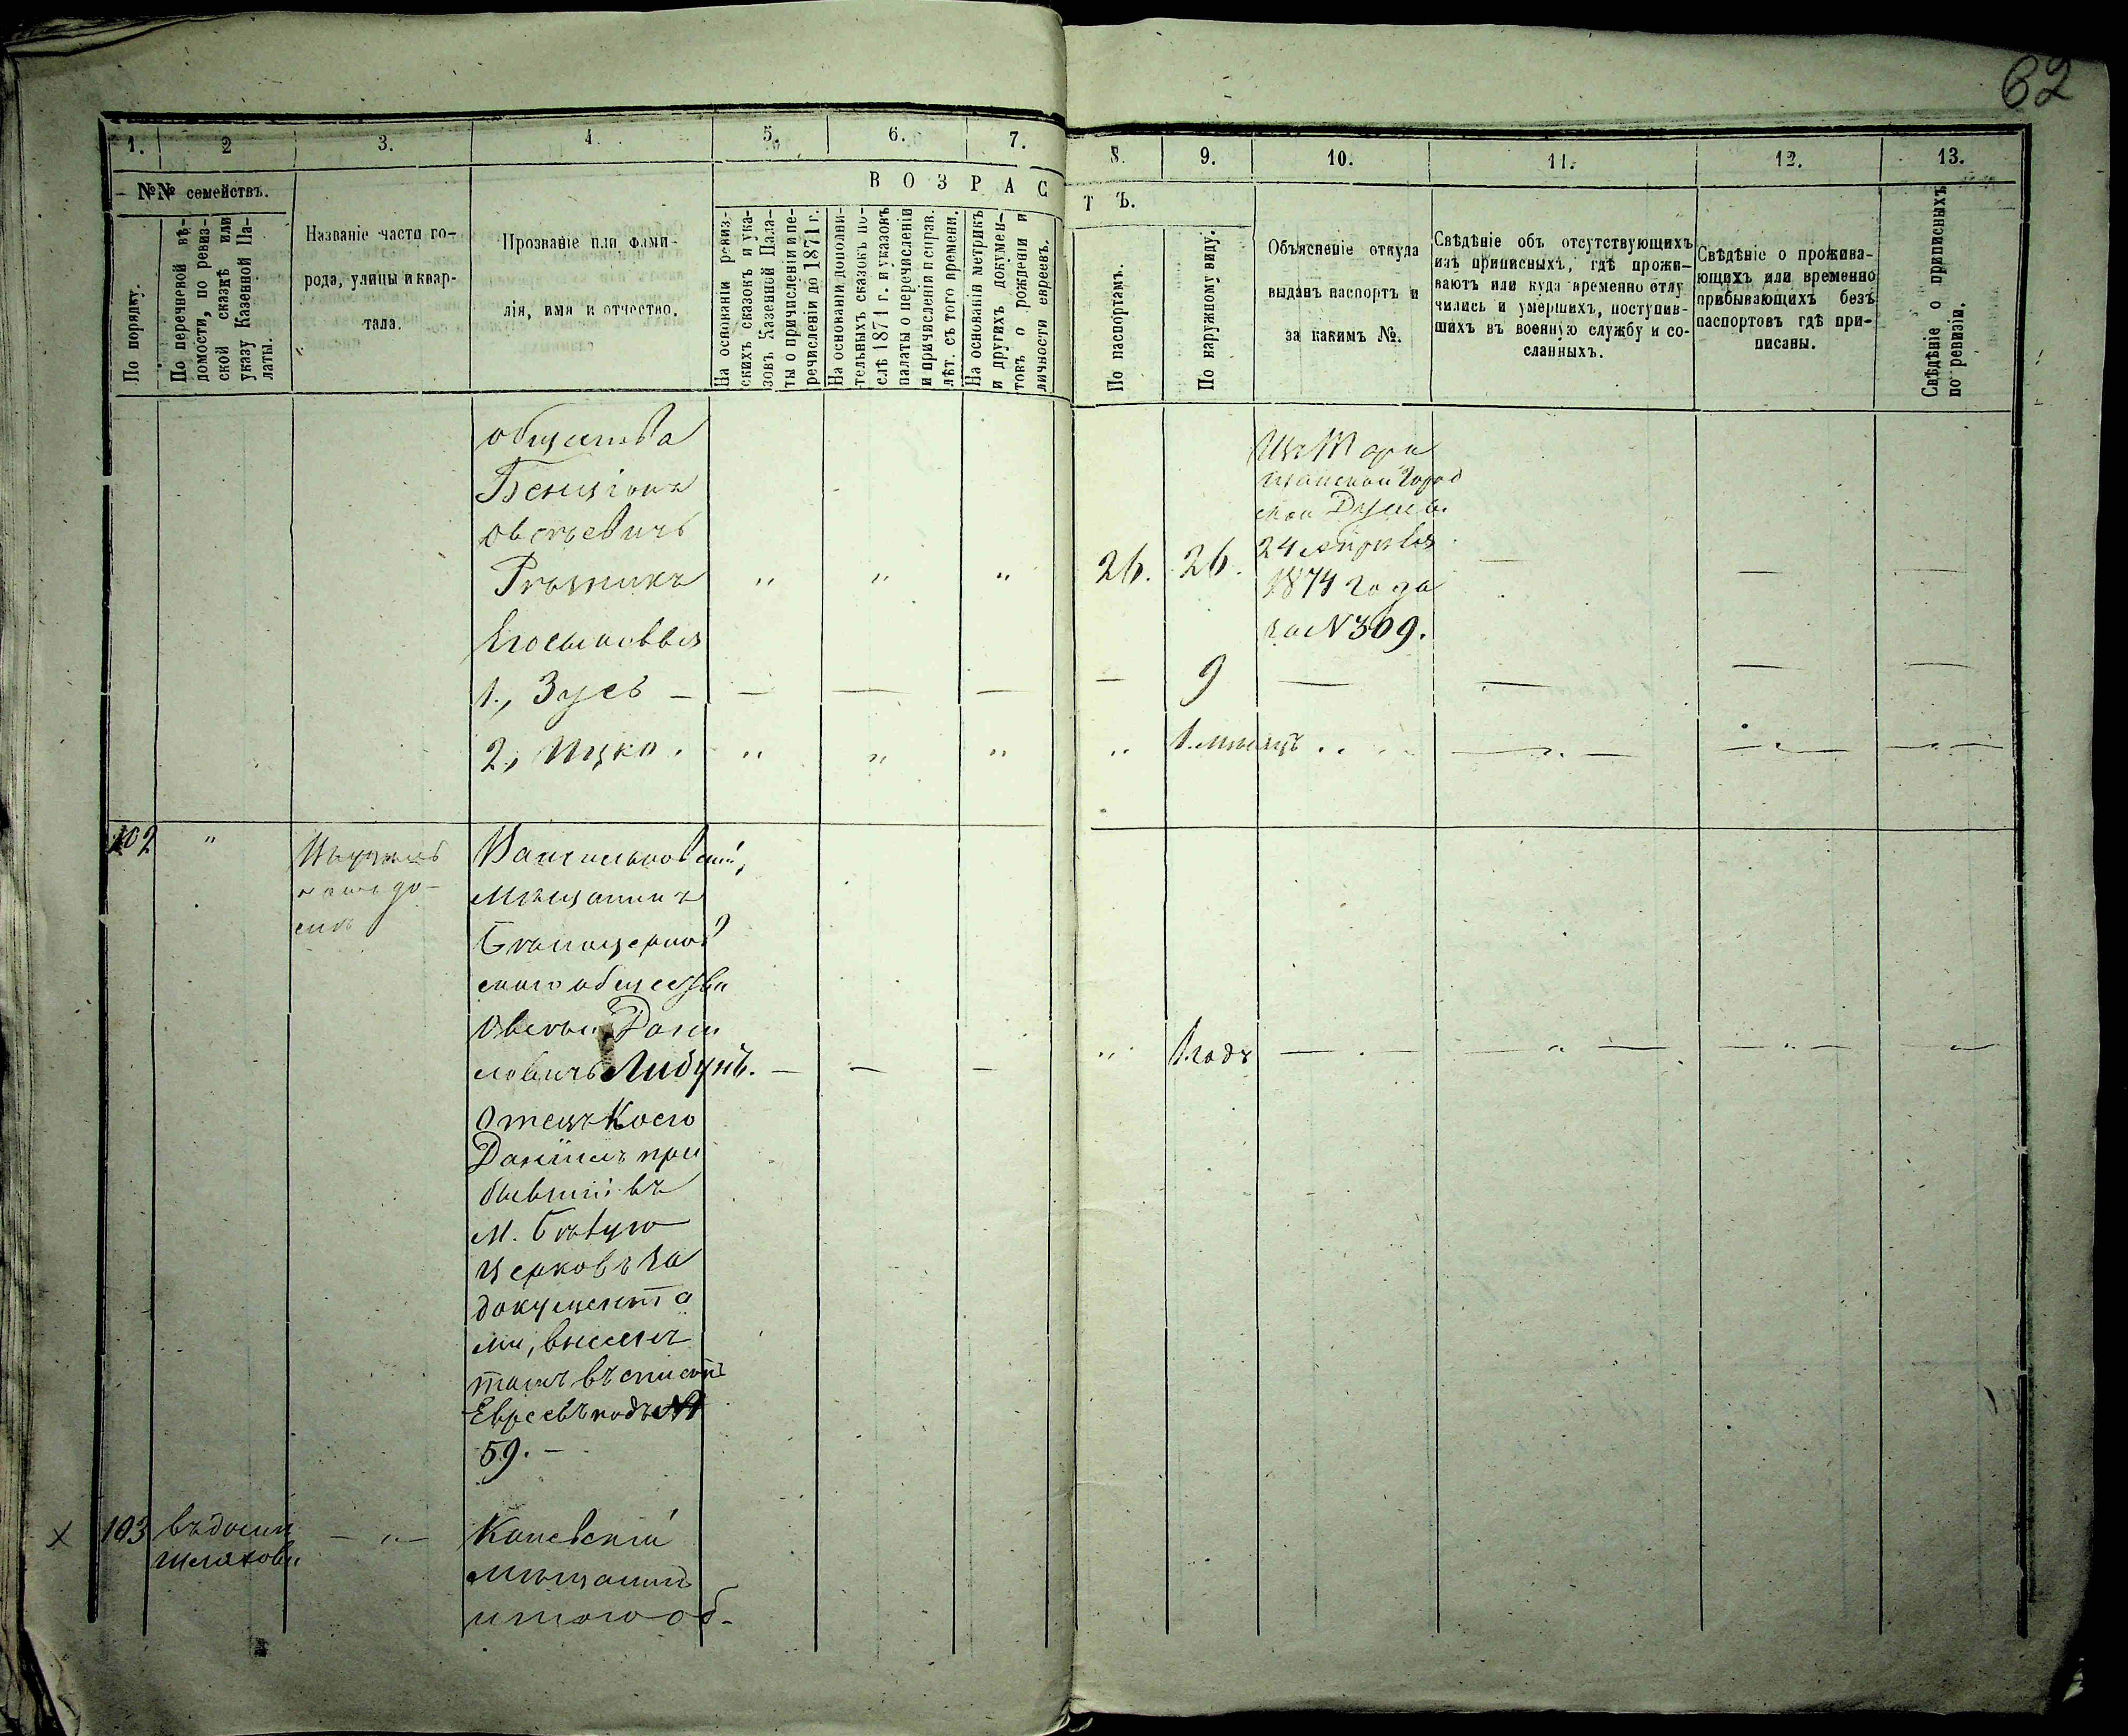 62
1. 2 3. 4. 5. 6. 7. 8. 9. 10. 11. 12. 13.
№№ семействъ.
По порядку.
По перечневой вѣ-
домости, по ревиз-
ской сказкѣ или
указу Казенной Па-
латы.
Названіе части го-
рода, улицы и квар-
тала.
Прозваніе или фами-
лія, имя и отчество.
ВОЗРАСТЪ.
На основаніи ревиз-
скихъ сказокъ и ука-
зовъ Казенной Пала-
ты о причисленіи и пе-
речисленіи до 1871 г.
На основаніи дополни-
тельныхъ сказокъ по-
слѣ 1871 г. и указовъ
палаты о перечисленіи
и причисленіи и справ.
лѣт. съ того времени.
На основаніи метрикъ
и другихъ докумен-
товъ о рожденіи и
личности евреевъ.
По паспортамъ.
По наружному виду.
Объясненіе откуда
выданъ паспортъ и
за какимъ №.
Свѣдѣніе объ отсутствующихъ
изъ приписныхъ, гдѣ прожи-
ваютъ или куда временно отлу
чились и умершихъ, поступив-
шихъ въ военную службу и со-
сланныхъ.
Свѣдѣніе о прожива-
ющихъ или временно
прибывающихъ безъ
паспортовъ гдѣ при-
писаны.
Свѣдѣніе о приписныхъ
по ревизіи.
общества
Бенціонъ
Овсѣевичъ
Рѣзникъ " " " 26. 26.
Его сыновья
1., Зусь — — — — — 9 — — — —
2., Ицко. " " " " 1. мѣсяцъ
Изъ Тара
щанской Город
ской Думы
24 Апрѣля
1874 года
за № 369.
102 "
Васильковскій,
мѣщанинъ
Бѣлоцерков
скаго общества
Овсѣй Дани
ловичъ Либунъ. — — — " 1. годъ
Отецъ Коего
Даніилъ при
бывшій въ
М. Бѣлую
Церковь за
документа
ми, внесенъ
тамъ въ списокъ
Евреевъ подъ №
59. —
х 103 въ домѣ
— " — Каневскій
мѣщанинъ
и того об-